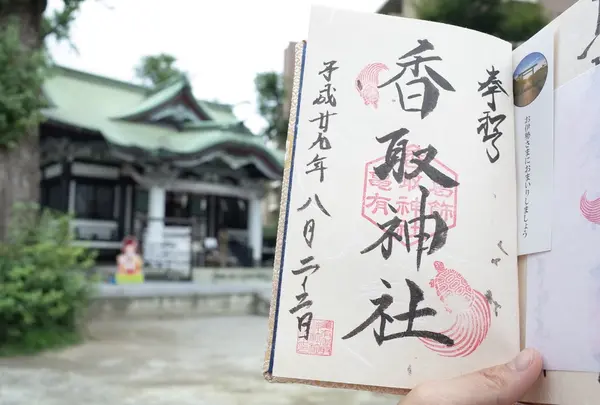 奉拝
香取神社
平成廿九年八月二十三日
葛飾
香取神社
亀有
お伊勢さまにおまいりしましょう